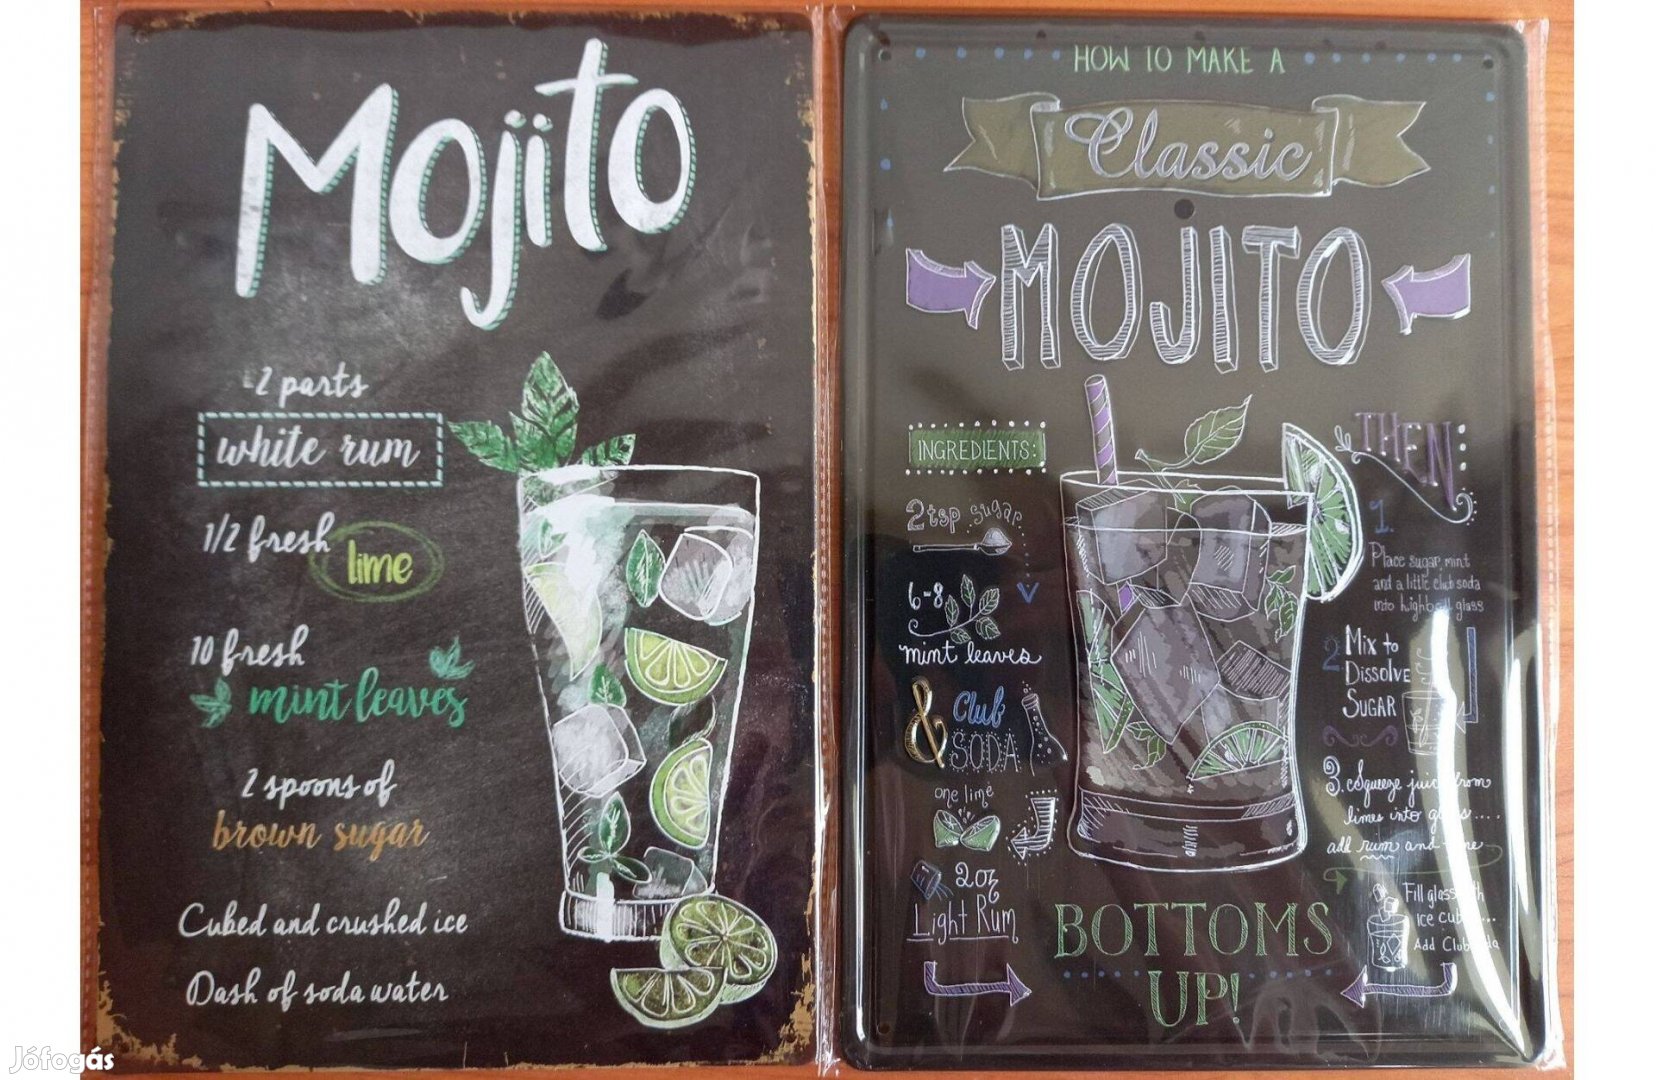 Mojito
2 parts
white rum
1/2 fresh
lime
10 fresh
mint leaves
2 spoons of
brown sugar
Cubed and crushed ice
Dash of soda water
HOW TO MAKE A
Classic
MOJITO
INGREDIENTS:
2 tsp sugar
6-8
mint leaves
& Club
SODA
one lime
2 oz
Light Rum
THEN
1.
Place sugar, mint
and a little club soda
into highball glass
2 Mix to
Dissolve
Sugar
3. Squeeze juice from
limes into glass....
add rum and
Fill glass with
ice
Add Club
BOTTOMS
UP!
Jófogás